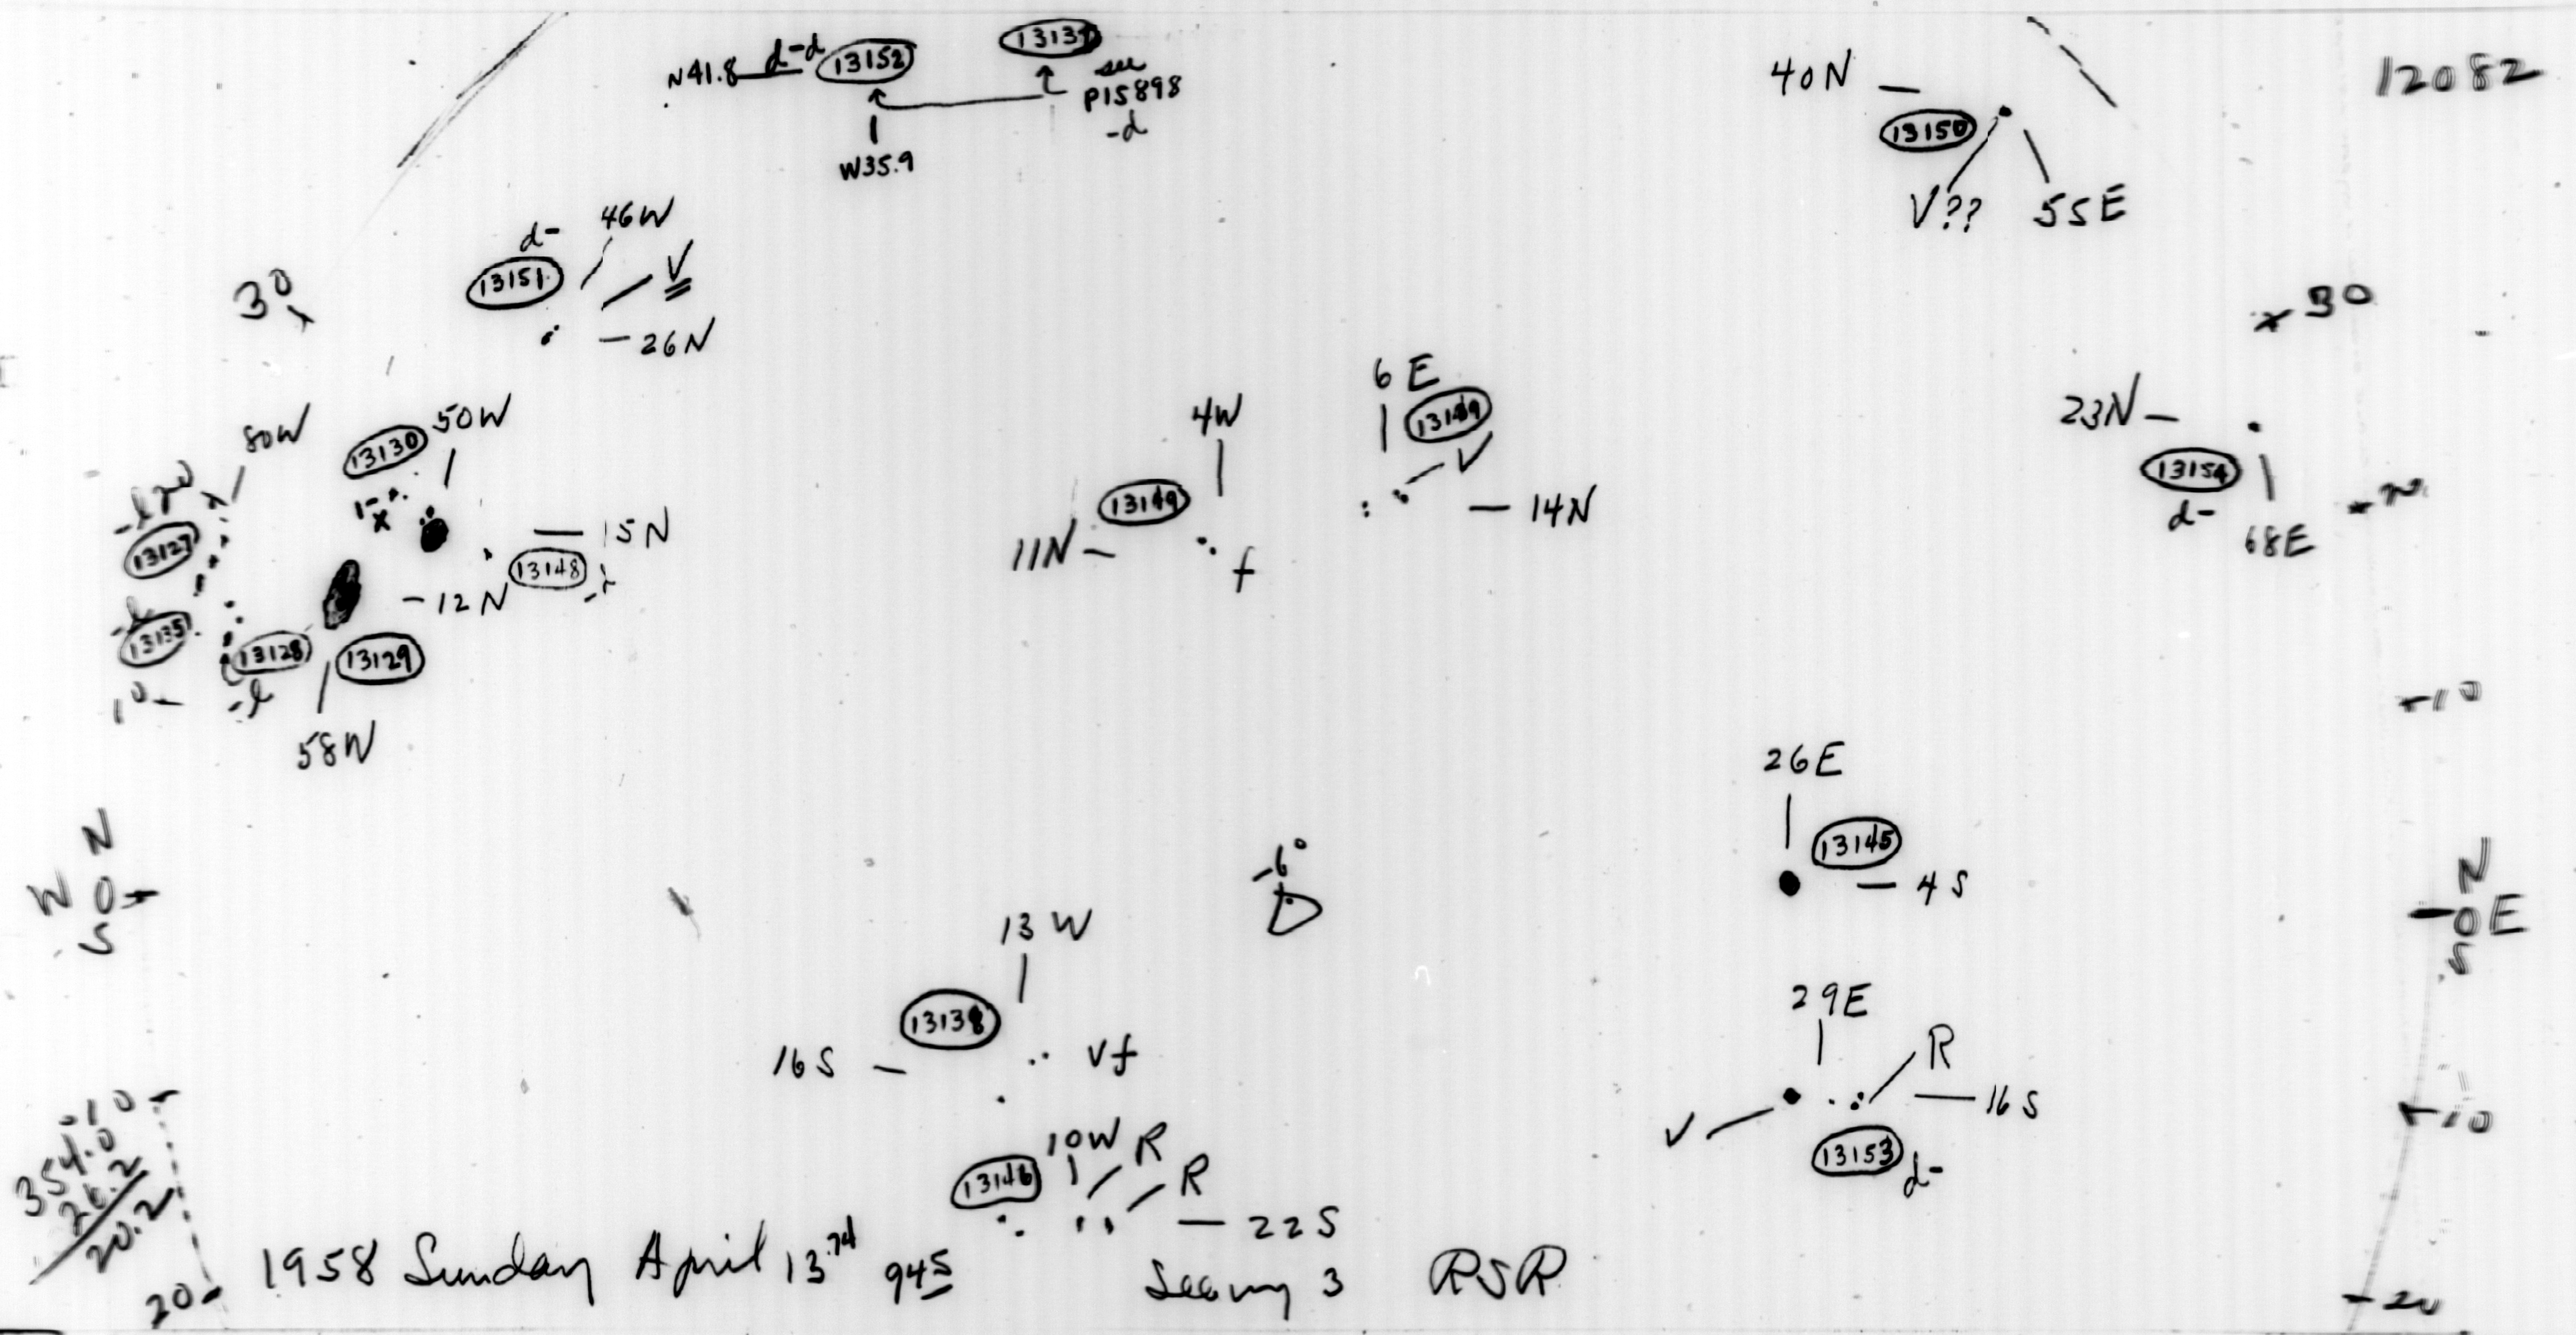 12082
N41.8 d-d 13152
see
P15898
-d
W35.9
40N
13150
V?? 55E
46W
d-
13151
V
26N
30
30
6E
V
4W
11N
f
14N
23N
13154
d-
68E
20
80W
50W
13130
-l 20
13127
15N
13148
12N
-l
13135
13128
13129
-l
10
58W
10
N
W O
S
-6°
26E
13145
4S
N
O E
S
13W
13138
16S
Vf
29E
R
V
16S
13153
d-
10
10W R
R
13146
22S
10
354.0
26.2
20.2
20
1958 Sunday April 13.74 945 Seeing 3 RSR
20